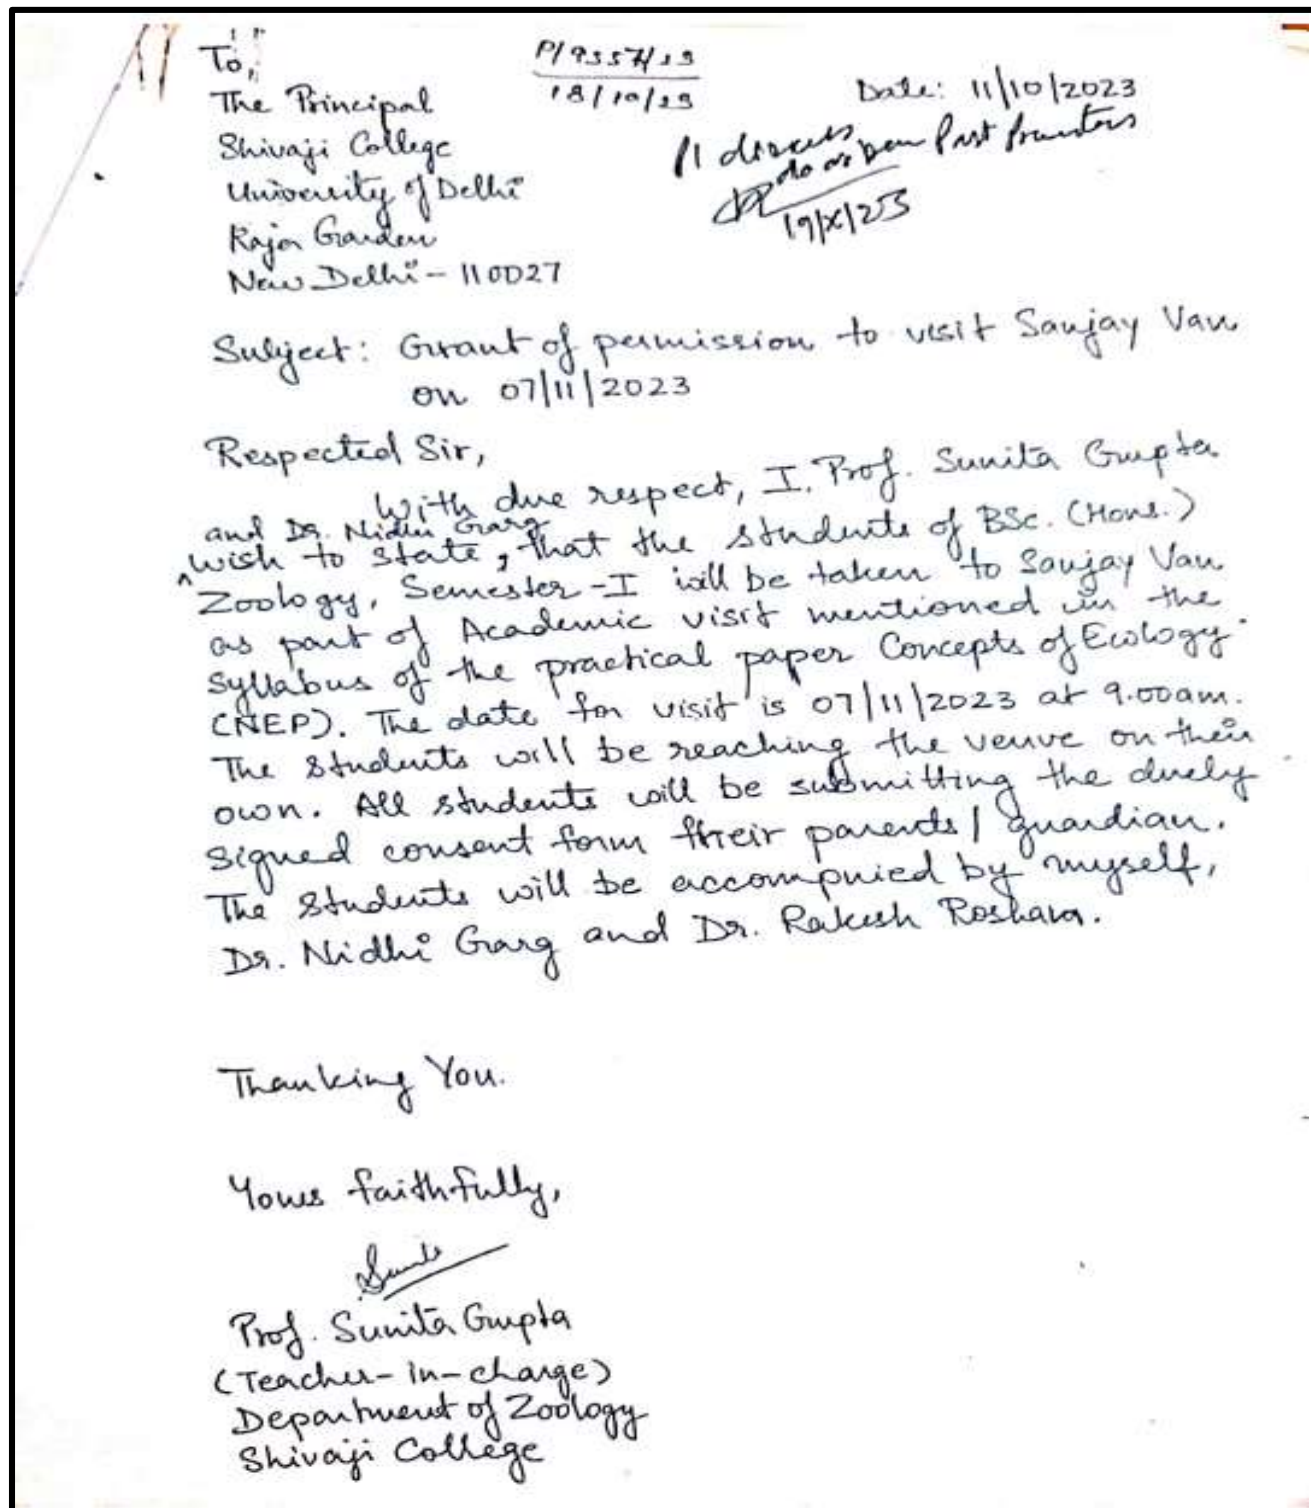 To,
P/9557/23
18/10/23
Date: 11/10/2023
The Principal
Shivaji College
University of Delhi
Raja Garden
New Delhi - 110027
Pl discuss
do as per Past
19/X/23
Subject: Grant of permission to visit Sanjay Van
on 07/11/2023
Respected Sir,
With due respect, I, Prof. Sunita Gupta
and Dr. Nidhi Garg
^wish to state, that the students of BSc. (Hons.)
Zoology, Semester-I will be taken to Sanjay Van
as part of Academic visit mentioned in the
syllabus of the practical paper Concepts of Ecology
(NEP). The date for visit is 07/11/2023 at 9.00am.
The students will be reaching the venue on their
own. All students will be submitting the duely
signed consent form their parents/guardian.
The students will be accompnied by myself,
Dr. Nidhi Garg and Dr. Rakesh Roshan.
Thanking You.
Yours faithfully,
Sunita
Prof. Sunita Gupta
(Teacher-in-charge)
Department of Zoology
Shivaji College